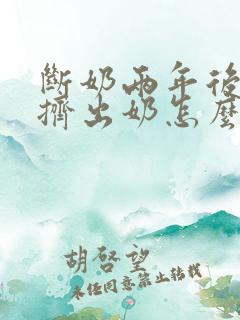 斷奶兩年後
擠出奶怎麼
胡啓望
未经同意禁止转载